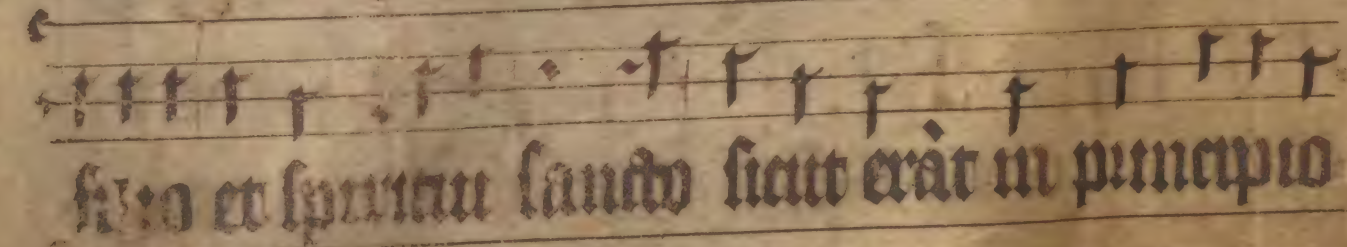 filio et spiritui sancto sicut erat in principio